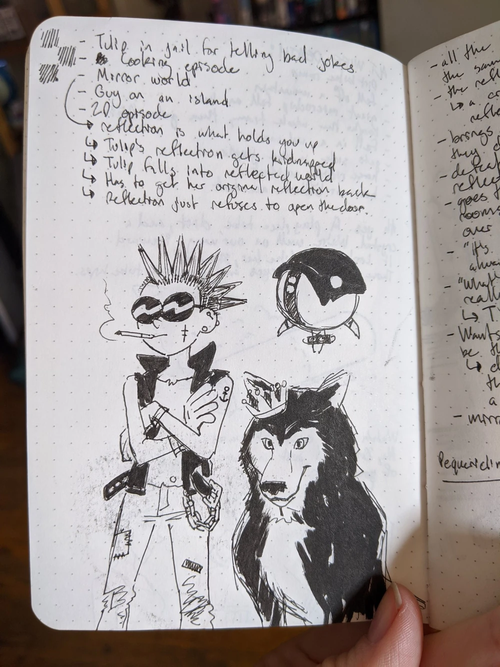 - Tulip in jail for telling bad jokes.
- Cooking episode
- Mirror world
- Guy on an island
- 2D episode
↳ reflection is what holds you up
↳ Tulip's reflection gets kidnapped
↳ Tulip falls into reflected world
↳ Has to get her original reflection back
↳ Reflection just refuses to open the door.
- all the
the sam
- the re
↳ a cr
refle
- brings
they d
- defe
reflec
- goes
room
over
- "it's
alwa
- "what
real
↳ T
Wants
be t
↳ d
th
a
- mirr
Pequerdin